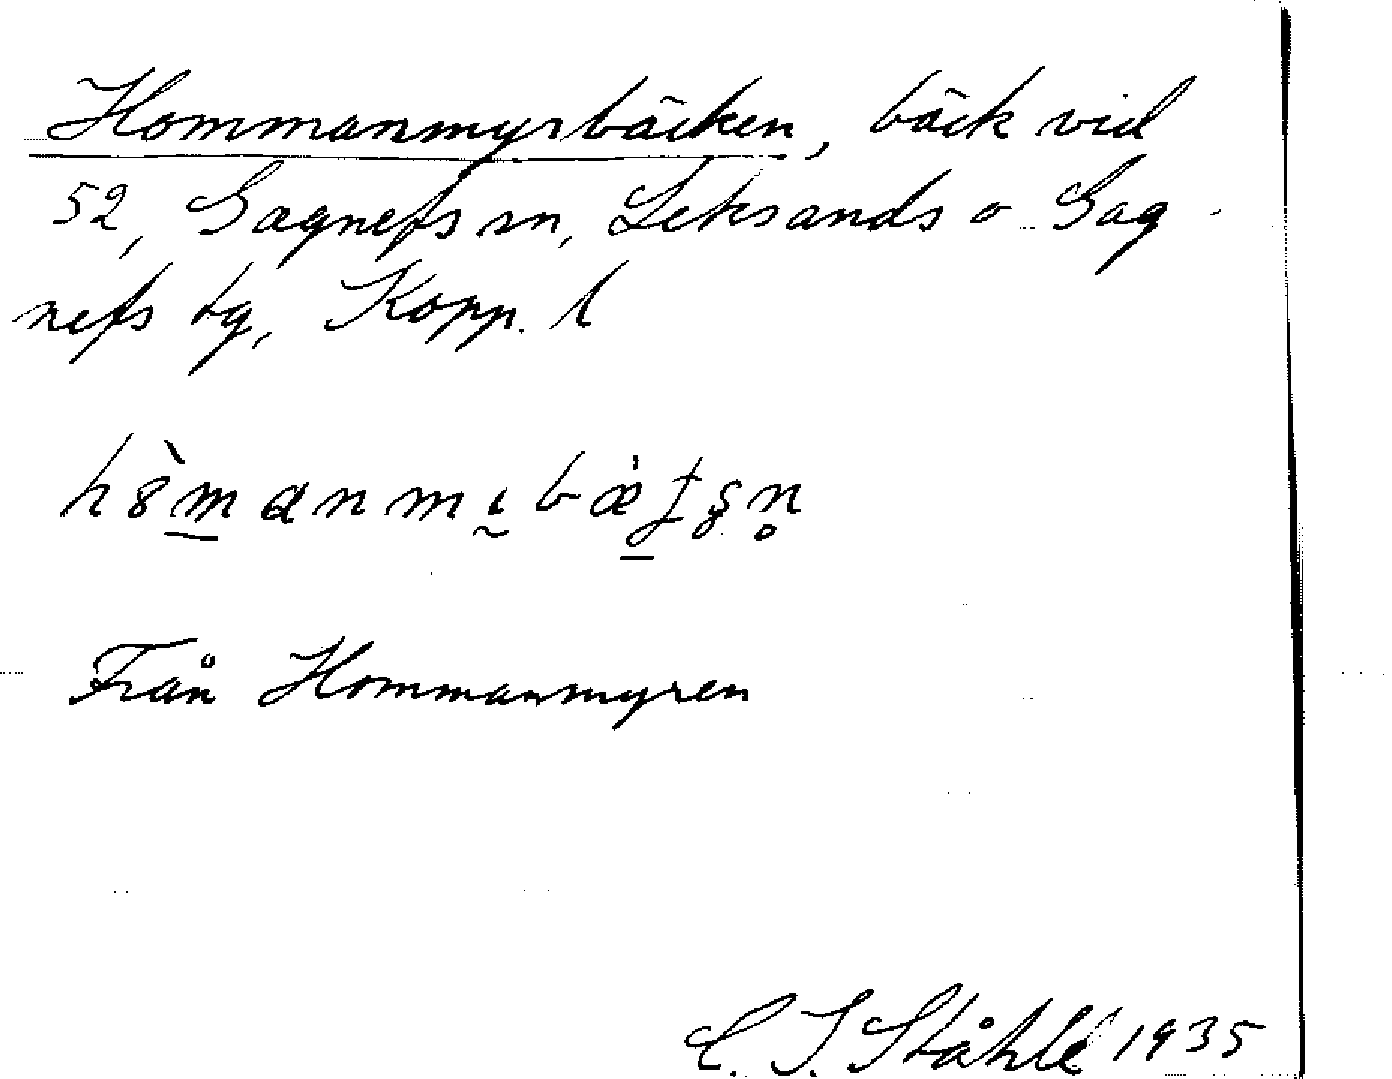 Hommanmyrbäcken, bäck vid
52, Gagnefs sn, Leksands o Gag-
nefs tg, Kopp. l
Från Hommanmyren
C. I. Ståhle 1935